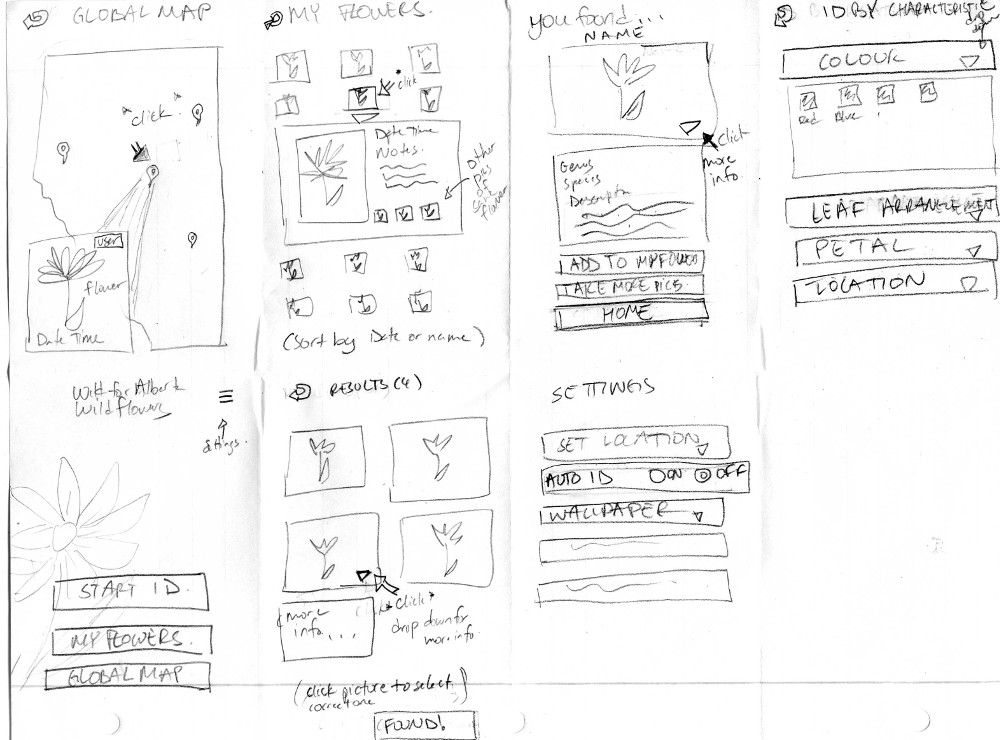 GLOBAL MAP
"click"
user
flower
Date Time
MY FLOWERS.
click
Date Time
Notes.
Other
pics
of
same
flower
(sort by Date or name)
you found...
NAME
click
more
info.
Genus
Species
Description
ADD TO MY FLOWERS
TAKE MORE PICS.
HOME
ID BY CHARACTERISTIC
COLOUR
Red
Blue
LEAF ARRANGEMENT
PETAL
LOCATION
Wildflower
settings.
START ID.
MY FLOWERS.
GLOBAL MAP
RESULTS (4)
more
info...
*click*
drop down for
more info.
(click picture to select
correct one)
FOUND!
SETTINGS
SET LOCATION
AUTO ID ON OFF
WALLPAPER